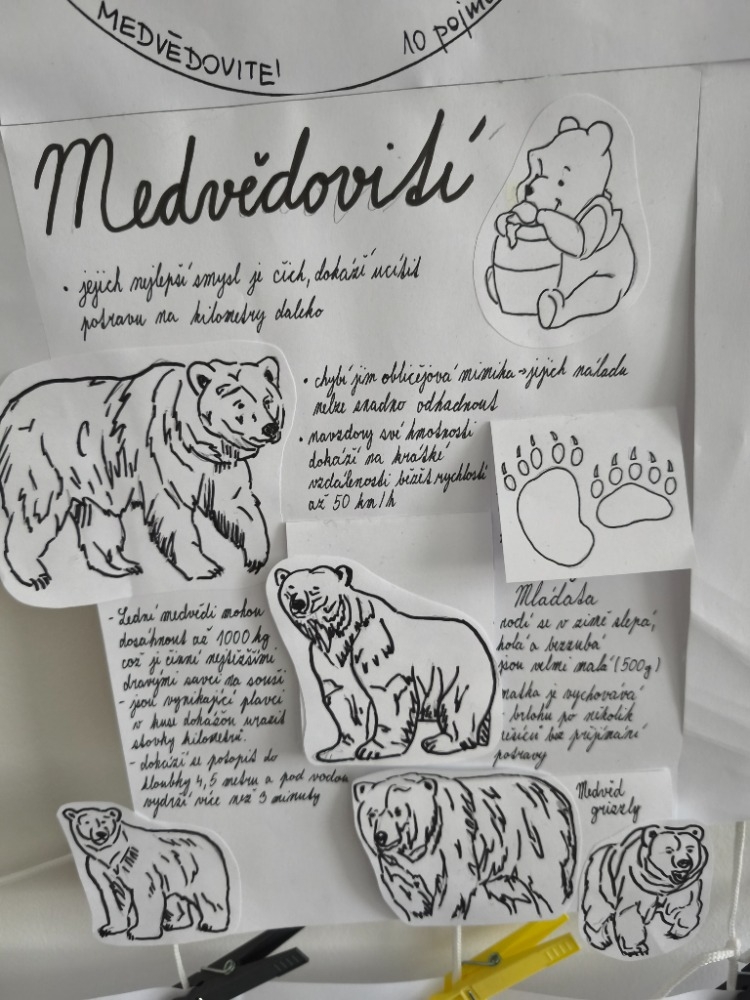 MEDVĚDOVITE!
10 pojmů
Medvědovití
• jejich nejlepší smysl je čich, dokáží ucítit
potravu na kilometry daleko
• chybí jim obličejová mimika → jejich náladu
nelze snadno odhadnout
• navzdory své hmotnosti
dokáží na krátké
vzdálenosti běžet rychlostí
až 50 km/h
- Lední medvědi mohou
dosáhnout až 1000 kg
což je činní nejtěžšími
dravými savci na souši
- jsou vynikající plavci
v kuse dokážou urazit
stovky kilometrů.
- dokáží se potopit do
hloubky 4,5 metru a pod vodou
vydrží více než 3 minuty
Mláďata
rodí se v zimě slepá,
holá a bezzubá
jsou velmi malá (500g)
matka je vychovává
brlohu po několik
měsíců bez přijímání
potravy
Medvěd
grizzly